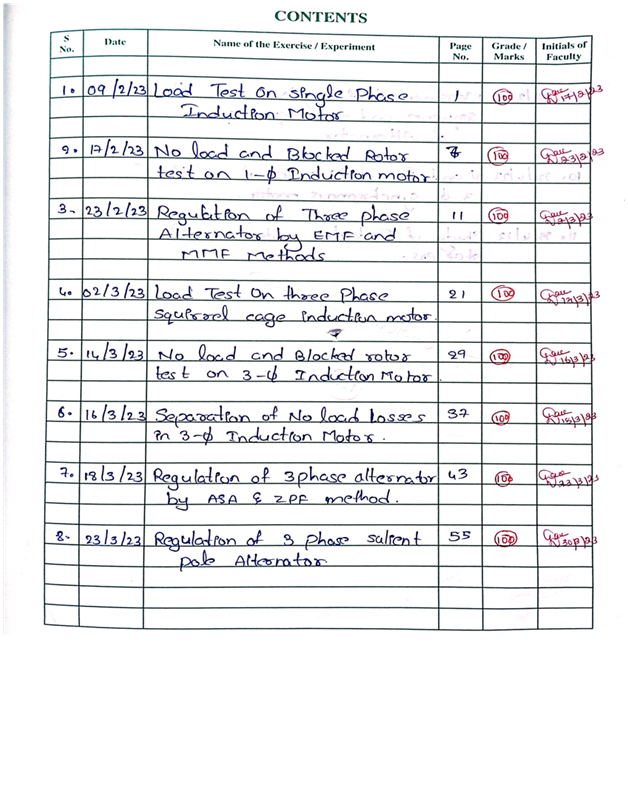 CONTENTS
S No. Date Name of the Exercise / Experiment Page No. Grade / Marks Initials of Faculty
1. 09/2/23 Load Test On Single Phase 1 100 17/2/23
Induction Motor
2. 17/2/23 No load and Blocked Rotor 7 100 23/2/23
test on 1-ϕ Induction motor.
3. 23/2/23 Regulation of Three phase 11 100
Alternator by EMF and
MMF Methods
4. 02/3/23 Load Test On three Phase 21 100
Squirrel cage induction motor.
5. 14/3/23 No load and Blocked rotor 29 100 16/3/23
test on 3-ϕ Induction Motor.
6. 16/3/23 Separation of No load Losses 37 100 18/3/23
in 3-ϕ Induction Motor.
7. 18/3/23 Regulation of 3 phase alternator 43 100 23/3/23
by ASA & ZPF method.
8. 23/3/23 Regulation of 3 phase salient 55 100 30/3/23
pole Alternator